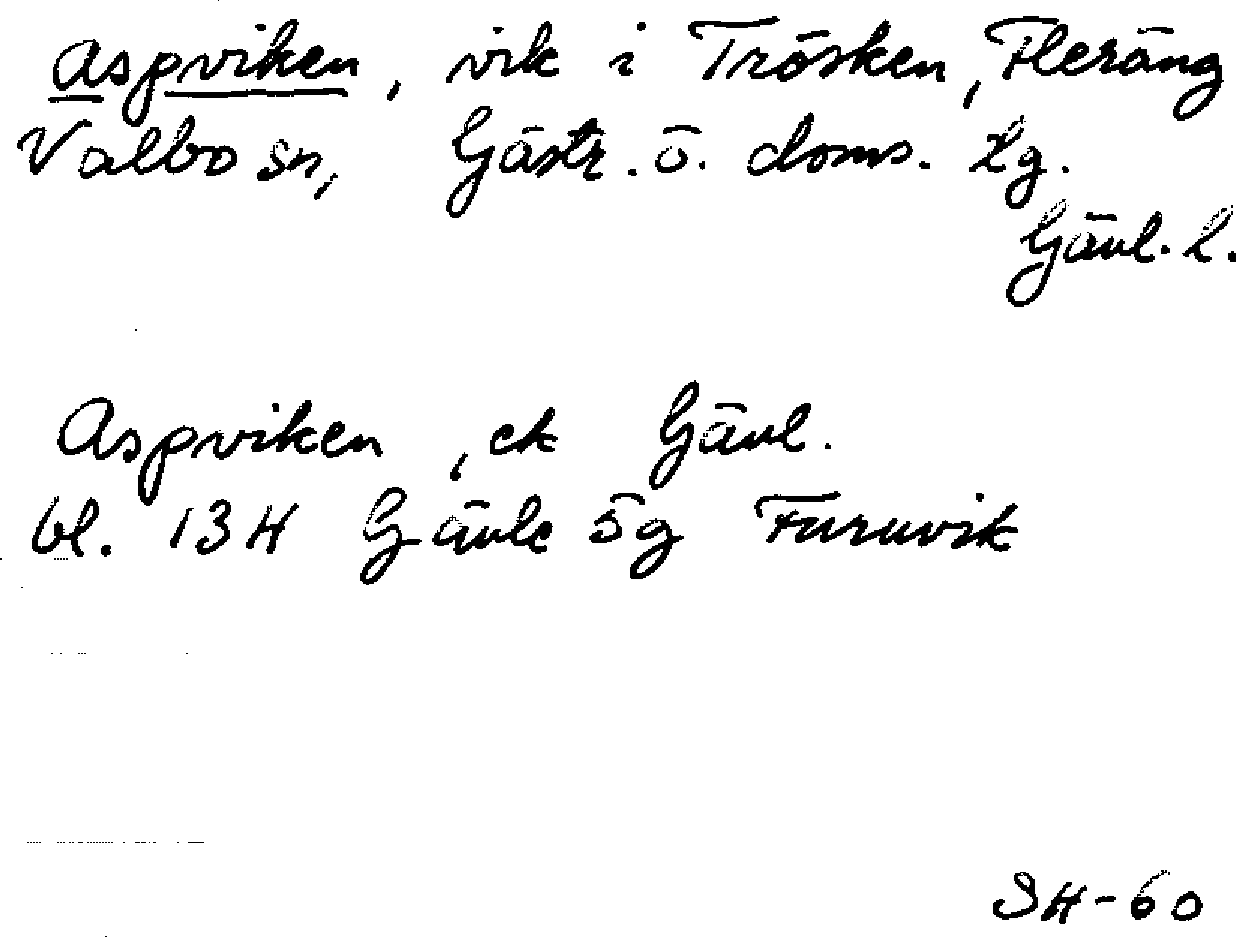 Aspviken, vik i Trösken, Fleräng
Valbo sn, Gästr. ö. doms. tg.
Gävl. l.
Aspviken, ek Gävl.
bl. 13H Gävle 5g Furuvik
SH-60